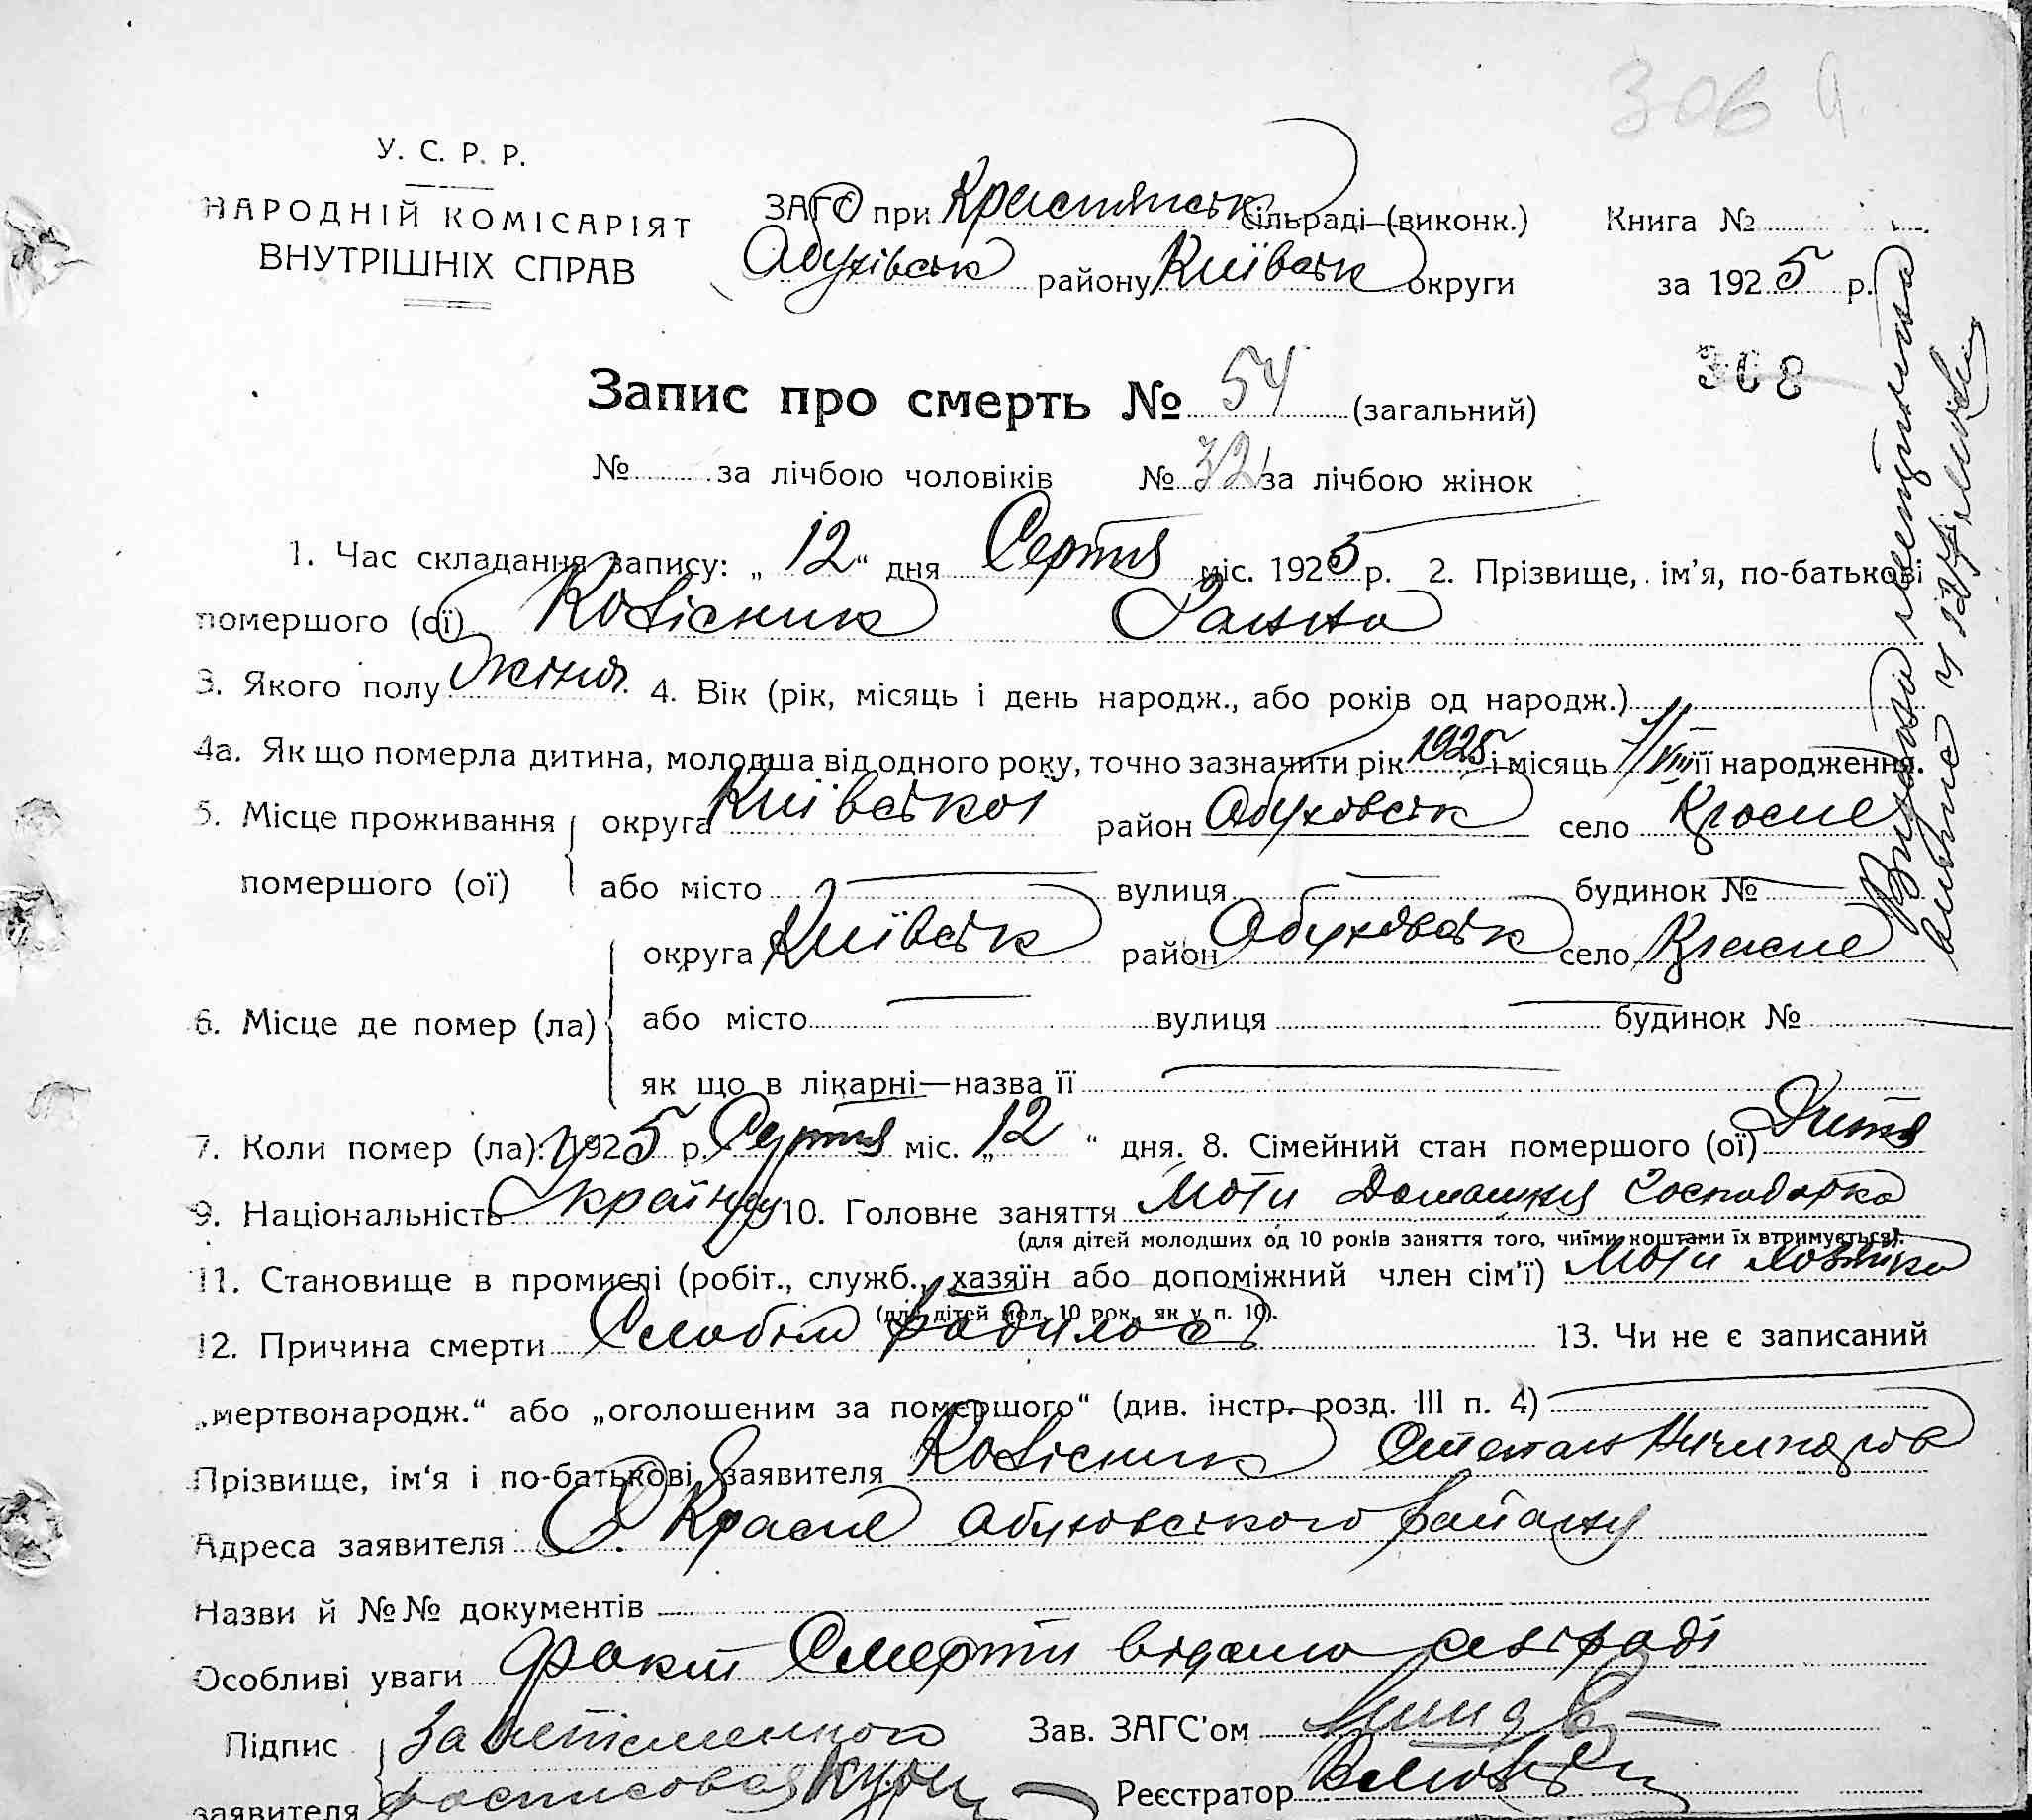 306
У. С. Р. Р.
НАРОДНІЙ КОМІСАРІЯТ
ВНУТРІШНІХ СПРАВ
ЗАГС при Краснянськ сільраді (виконк.) Книга №
Обухівськ району Київськ округи за 1925 р.
308
Запис про смерть № 54 (загальний)
№ за лічбою чоловіків № 32 за лічбою жінок
1. Час складання запису: „12“ дня Серпня міс. 1925 р. 2. Прізвище, ім’я, по-батькові
помершого (ої) Колісник Ганна
3. Якого полу 4. Вік (рік, місяць і день народж., або років од народж.)
4а. Як що померла дитина, молодша від одного року, точно зазначити рік 1925 і місяць 7/VIII її народження.
5. Місце проживання округа Київської район Обуховськ село Красне
помершого (ої) або місто вулиця будинок №
округа Київськ район Обуховськ село Красне
6. Місце де помер (ла) або місто вулиця будинок №
як що в лікарні—назва її
7. Коли помер (ла): 1925 р. Серпня міс. „12“ дня. 8. Сімейний стан помершого (ої) Дитя
9. Національність 10. Головне заняття Мати Домашня Господарка
(для дітей молодших од 10 років заняття того, чиїми коштами їх втримується).
11. Становище в промислі (робіт., служб., хазяїн або допоміжний член сім’ї) Мати
(для дітей мол. 10 рок., як у п. 10).
12. Причина смерти 13. Чи не є записаний
„мертвонародж.“ або „оголошеним за помершого“ (див. інстр. розд. III п. 4)
Прізвище, ім‘я і по-батькові заявителя Колісник Степан
Адреса заявителя С. Красне Обуховського району
Назви й №№ документів
Особливі уваги Факт Смерти відомо сільраді
Підпис За неписьменного Зав. ЗАГС’ом
заявителя росписовся Реєстратор